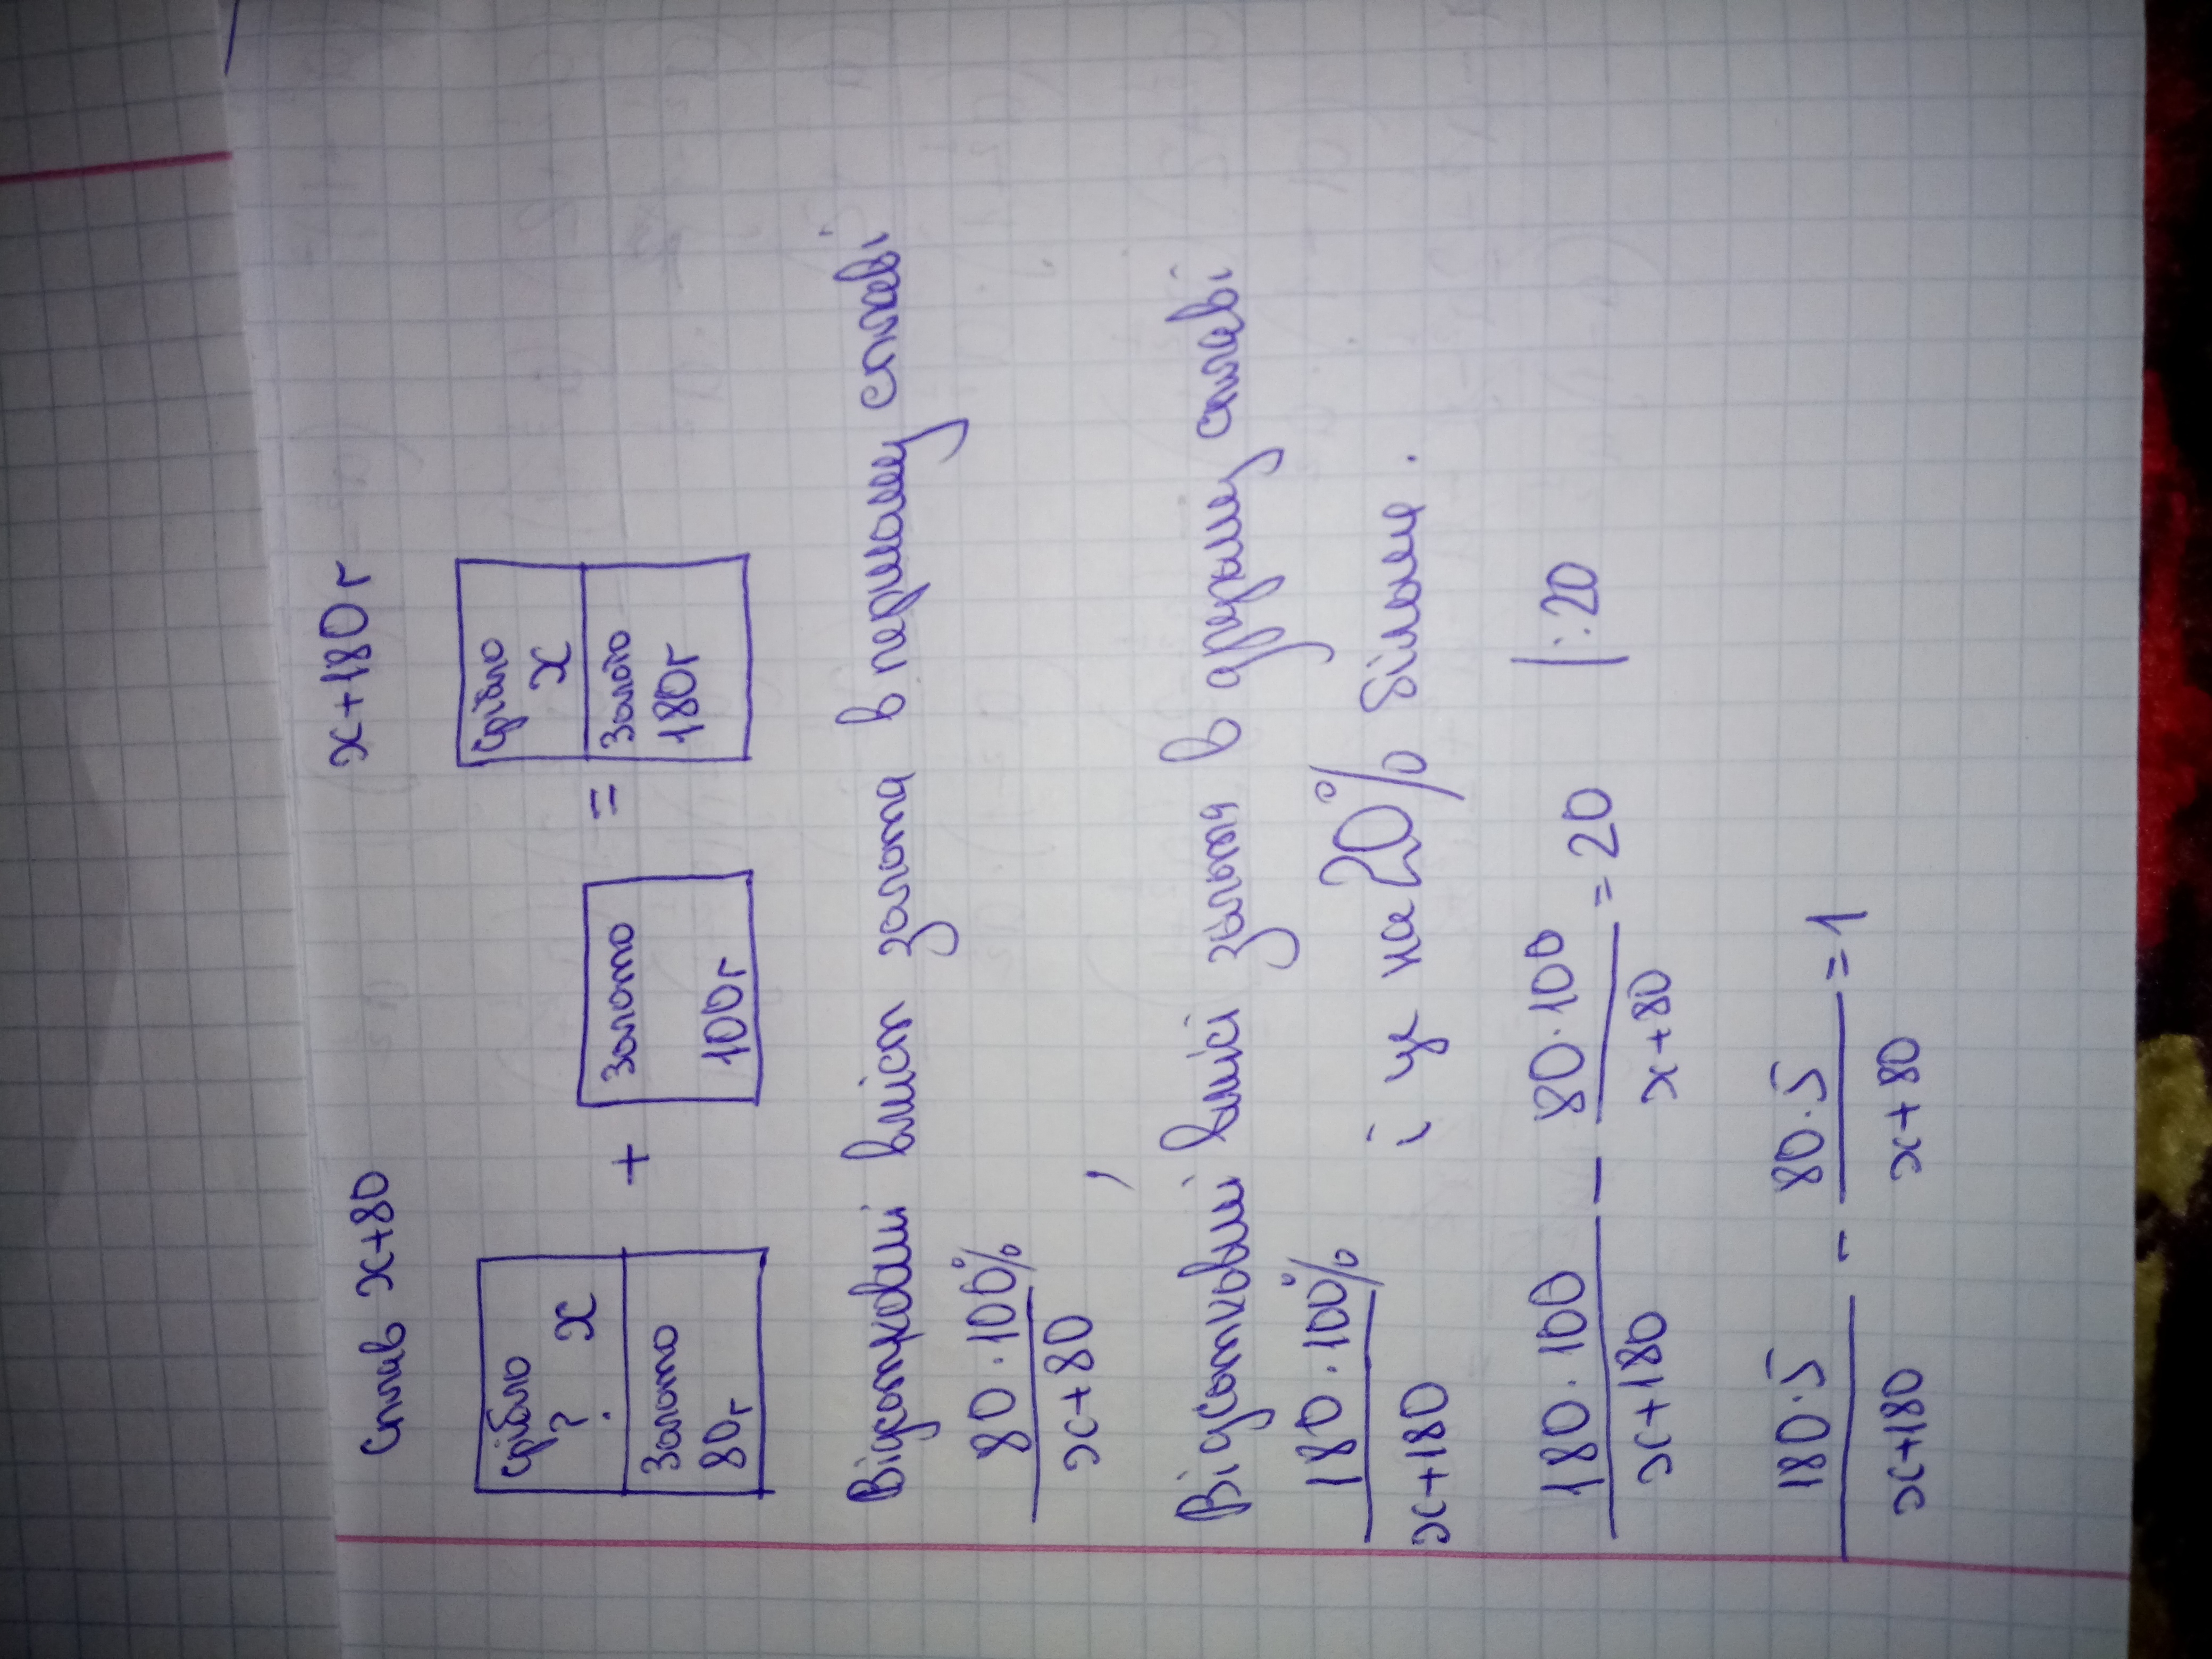 Сплав x+80 x+180 г
Срібло ? x Срібло x
+ Золото 100г =
Золото 80г Золото 180г
Відсотковий вміст золота в першому сплаві
80·100% / x+80 ,
Відсотковий вміст золота в другому сплаві
180·100% / x+180 і це на 20% більше.
180·100 / x+180 — 80·100 / x+80 = 20 |:20
180·5 / x+180 - 80·5 / x+80 = 1